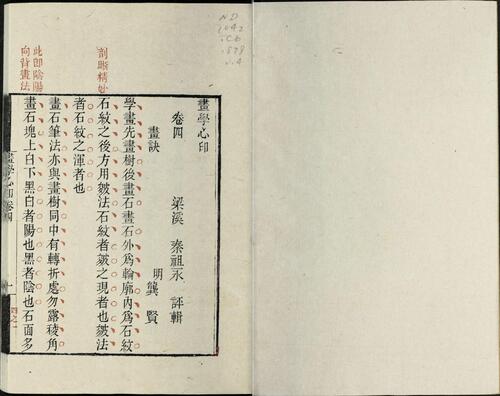 畫學心印
卷四
梁溪 秦祖永 評輯
畫訣
明 龔賢
學畫先畫樹後畫石畫石外爲輪廓內爲石紋
石紋之後方用皴法石紋者皴之現者也皴法
者石紋之渾者也
畫石筆法亦與畫樹同中有轉折處勿露稜角
畫石塊上白下黑白者陽也黑者陰也石面多
剖晰精妙
此卽陰陽
向背畫法
畫學心印卷四
一
ND
1042
.C6
1878
v.4